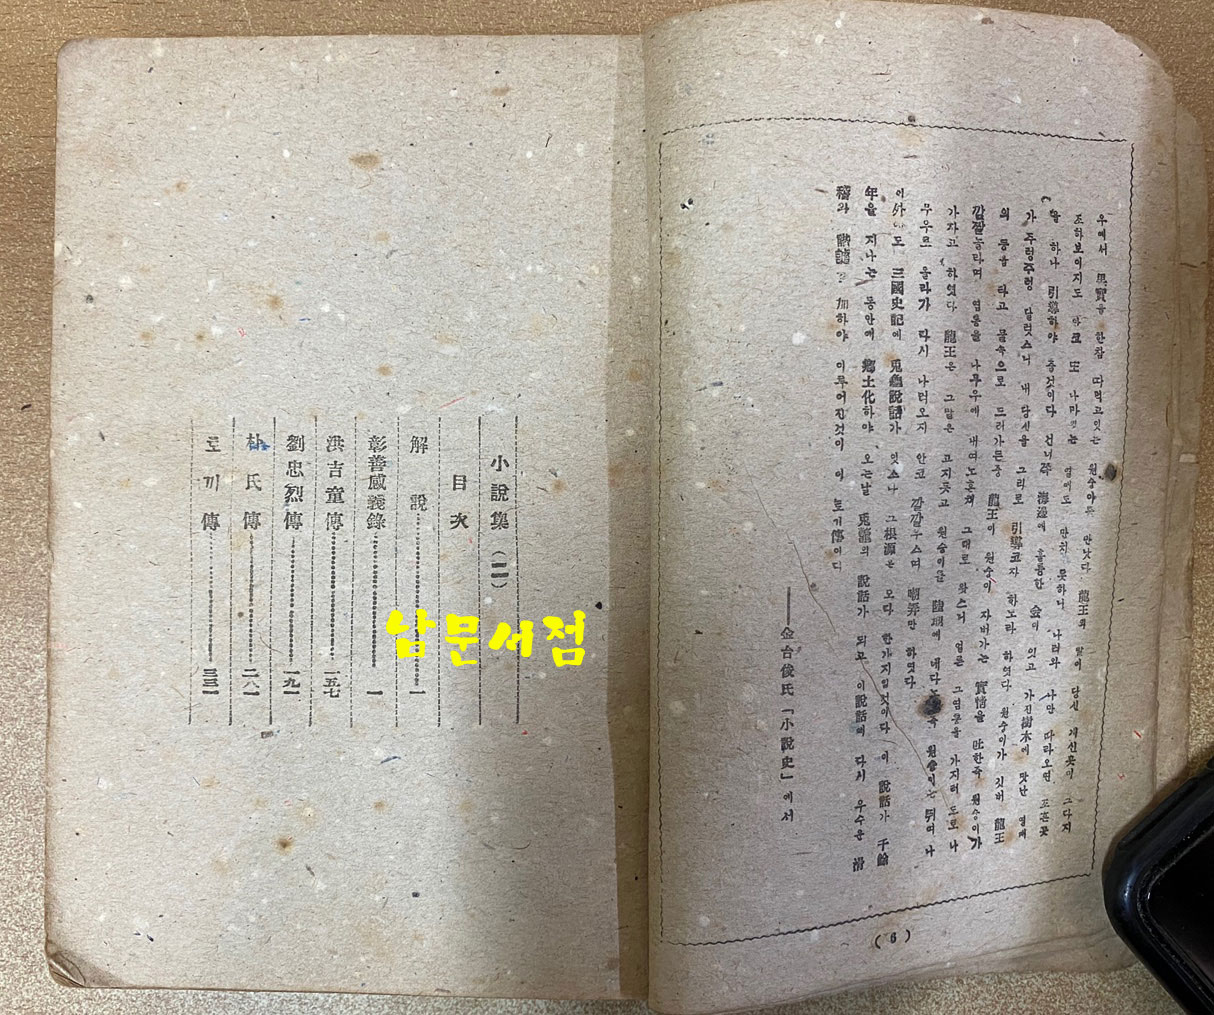 우에서 果實을 한참 따먹고잇는 원숭이를 만낫다. 龍王의 말이 당신 계신곳이 그다지
조하보이지도 안코 또 나마 는 열매도 만치 못하니 나려와 나만 따라오면 조흔곳
을 하나 引導하야 줄것이다 건너便 海邊에 훌륭한 金이 잇고 가진樹木에 맛난 열매
가 주렁주렁 달렷스니 내 당신을 그리로 引導코자 하노라 하엿다. 원숭이가 깃버 龍王
의 등을 타고 물속으로 드러가든중 龍王이 원숭이 자버가는 實情을 吐한즉 원숭이가
깔깔놀라며 염통을 나무우에 내여노흔채 그대로 왓스니 얼른 그염통을 가지러 도로 나
가자고 하엿다. 龍王은 그말은 고지듯고 원숭이을 陸地에 데다 즉 원숭이는 뛰여 나
무우로 올라가 다시 나려오지 안코 깔깔우스며 嘲弄만 하엿다.
이外 도 三國史記에 兎龜說話가 잇스나 그根源는 오다 한가지일것이다 이 說話가 千餘
年을 지나는 동안에 鄕土化하야 오는날 兎鼈의 說話가 되고 이說話에 다시 우수운 滑
稽와 諧謔을 加하야 이루어진것이 이 토기傳이다
——金台俊氏「小說史」에서
(6)
小說集(二)
目次
解說 一
彰善感義錄 一
洪吉童傳 一五七
劉忠烈傳 一九一
朴氏傳 二八一
토끼傳 三三一
남문서점